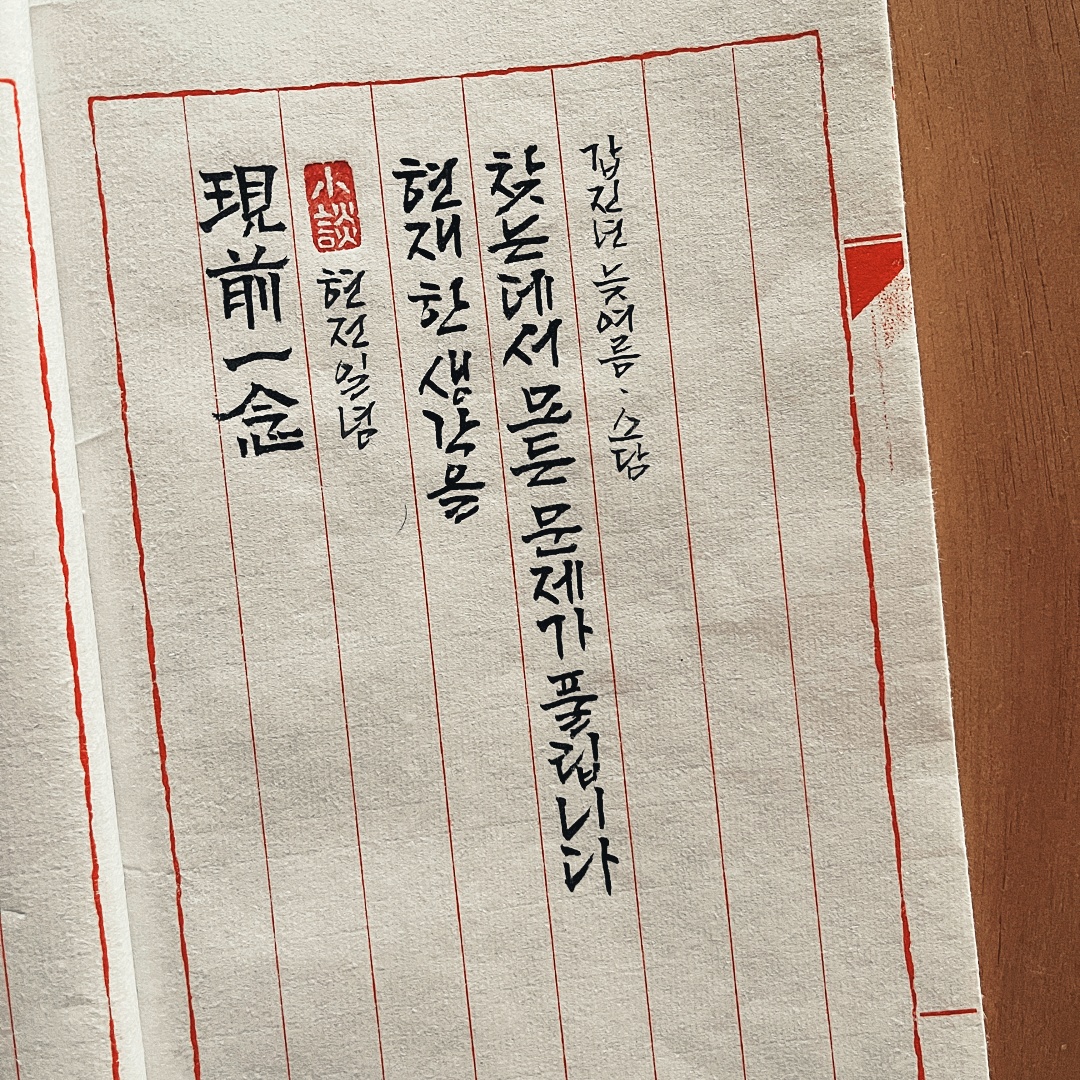 現前一念
小談
현전일념
현재 한 생각을
찾는데서 모든 문제가 풀립니다
갑진년 늦여름·소담